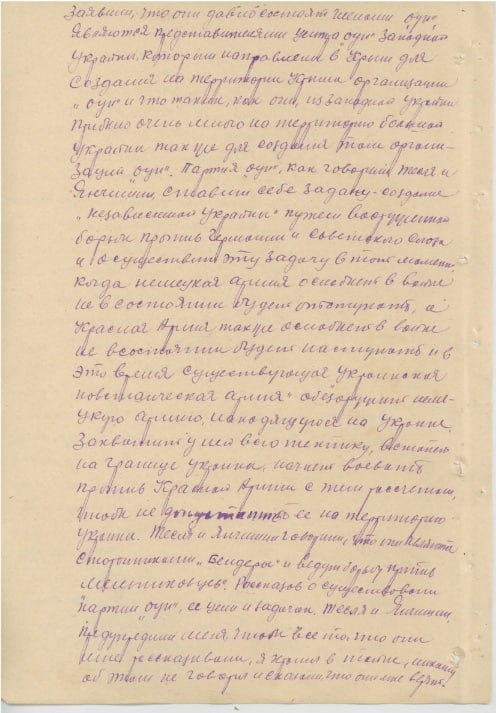 заявили, что они давно состоят членами „оун"
являются представителями центра оун" Западной
Украины, которым направлены в Крым для
создания на территории Крыма организации
„оун" и что таких, как они, из западной Украины
прибыло очень много на территорию большой
Украины также для создания там органи-
заций „оун". Партия „оун", как говорили Тесля и
Янчишин, ставит себе задачу - создание
„независимой Украины" путем вооруженной
борьбы против Германии и Советского Союза
и осуществит эту задачу в тот момент,
когда немецкая армия ослабнет в войне
не в состоянии будет отступать, а
Красная Армия также ослабнет в войне
не в состоянии будет наступать и в
это время существующая Украинская
повстанческая армия" обезоружит неме-
цкую армию, находящуюся на Украине,
захватит у ней всю технику, встанет
на границе Украины, начнет воевать
против Красной Армии с тем рассчетом,
чтобы не допустить ее на территорию
Украины. Тесля и Янчишин говорили, что они являются
сторонниками „Бендеры" и ведут борьбу против
мельниковцев". Рассказав о существовании
партии „оун", ее цели и задачах. Тесля и Янчишин
предупредили меня, чтобы все то, что они
мне рассказывали, я хранил в тайне, никому
об этом не говорил и сказали, что они мне верят.